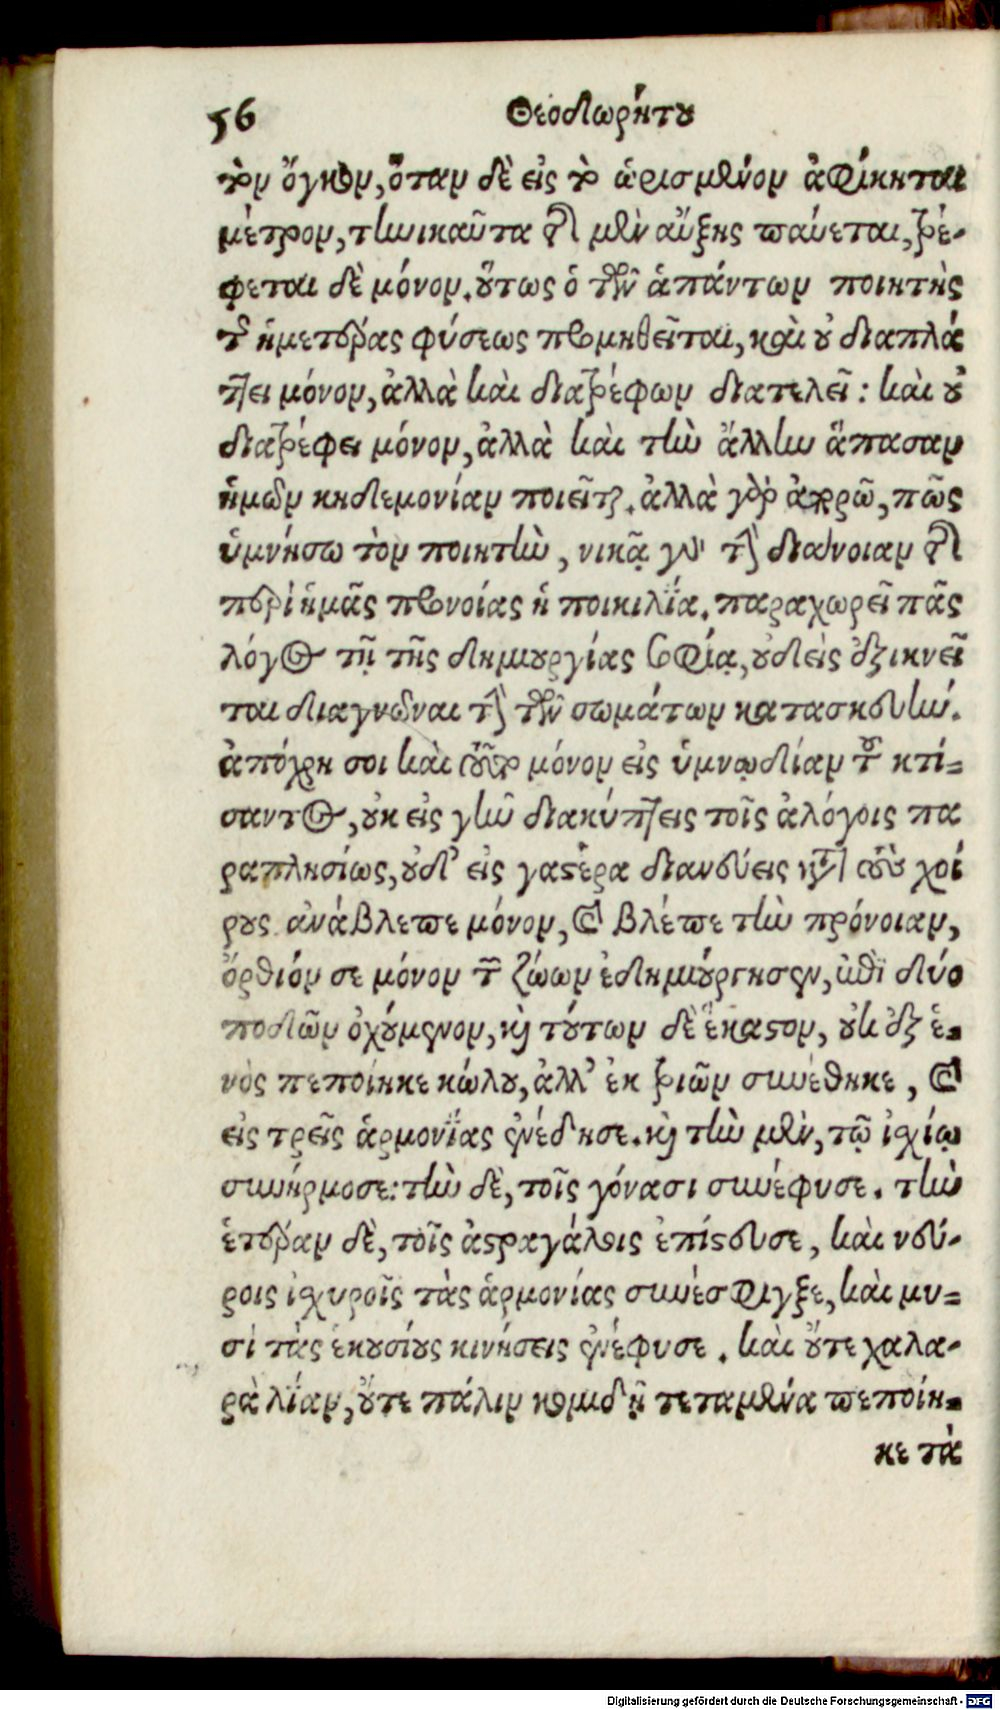 56 Θεοδωρήτου
τὸν ὄγκον, ὅταν δὲ εἰς τὸ ὡρισμένον ἀφίκηται
μέτρον, τηνικαῦτα τῆς μὲν αὔξης παύεται, τρέ-
φεται δὲ μόνον. οὕτως ὁ τῶν ἁπάντων ποιητὴς
τῆς ἡμετέρας φύσεως προμηθεῖται, καὶ οὐ διαπλά
τ]ει μόνον, ἀλλὰ καὶ διατρέφων διατελεῖ: καὶ οὐ
διατρέφει μόνον, ἀλλὰ καὶ τὴν ἄλλην ἅπασαν
ἡμῶν κηδεμονίαν ποιεῖται. ἀλλὰ γὰρ ἀπορῶ, πῶς
ὑμνήσω τὸν ποιητὴν, νικᾷ γὰρ τὴν διάνοιαν τῆς
περὶ ἡμᾶς προνοίας ἡ ποικιλία. παραχωρεῖ πᾶς
λόγος τῇ τῆς δημιουργίας σοφίᾳ, οὐδεὶς ἐξικνεῖ
ται διαγνῶναι τὴν τῶν σωμάτων κατασκευήν.
ἀπόχρη σοι καὶ τοῦτο μόνον εἰς ὑμνῳδίαν τοῦ κτί=
σαντος, οὐκ εἰς γῆν διακύπτεις τοῖς ἀλόγοις πα
ραπλησίως, οὐδ' εἰς γαστέρα διανεύεις κατὰ τοὺς χοί
ρους ἀνάβλεπε μόνον, καὶ βλέπε τὴν πρόνοιαν,
ὄρθιόν σε μόνον τῶν ζώων ἐδημιούργησεν, ἐπὶ δύο
ποδῶν ὀχούμενον, καὶ τούτων δὲ ἕκαστον, οὐκ ἐξ ἑ-
νὸς πεποίηκε κώλου, ἀλλ' ἐκ τριῶν συνέθηκε, καὶ
εἰς τρεῖς ἁρμονίας ἐνέδησε. καὶ τὴν μὲν, τῷ ἰσχίῳ
συνήρμοσε: τὴν δὲ, τοῖς γόνασι συνέφυσε. τὴν
ἑτέραν δὲ, τοῖς ἀστραγάλοις ἐπίστευσε, καὶ νεύ-
ροις ἰσχυροῖς τὰς ἁρμονίας συνέσφιγξε, καὶ μυ=
σὶ τὰς ἑκουσίους κινήσεις ἐνέφυσε. καὶ οὔτε χαλα-
ρὰ λίαν, οὔτε πάλιν κομιδῇ τεταμένα πεποίη-
κε τὰ
Digitalisierung gefördert durch die Deutsche Forschungsgemeinschaft - DFG